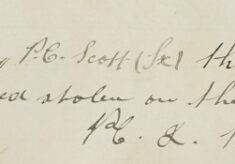 " P.C. Scott (Sx) th
ed stolen on the
P.C. &